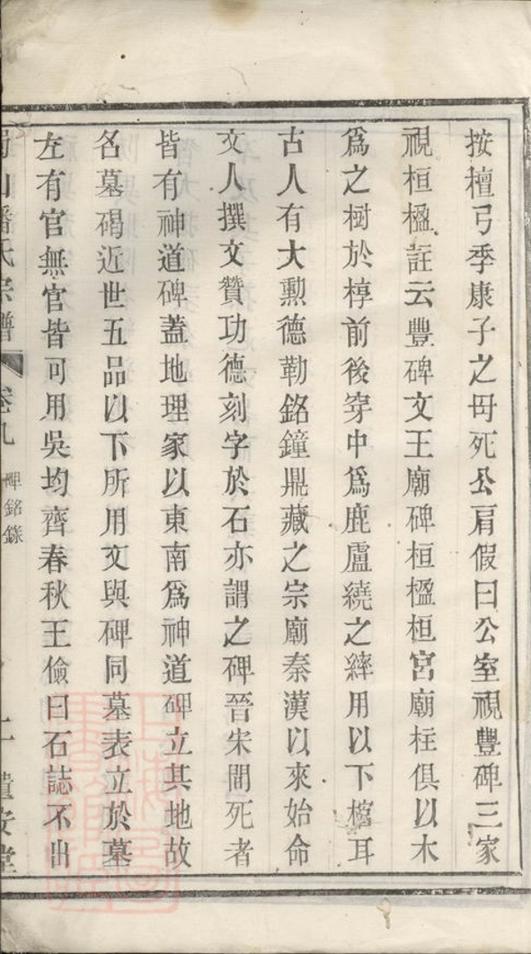 按檀弓季康子之母死公肩假曰公室視豐碑三家
視桓楹註云豐碑文王廟碑桓楹桓宮廟柱俱以木
爲之樹於椁前後穿中爲鹿盧繞之繂用以下棺耳
古人有大勲德勒銘鐘鼎藏之宗廟秦漢以來始命
文人撰文贊功德刻字於石亦謂之碑晉宋間死者
皆有神道碑蓋地理家以東南爲神道碑立其地故
名墓碣近世五品以下所用文與碑同墓表立於墓
左有官無官皆可用吳均齊春秋王儉曰石誌不出
山潘氏宗譜 卷九 碑銘錄